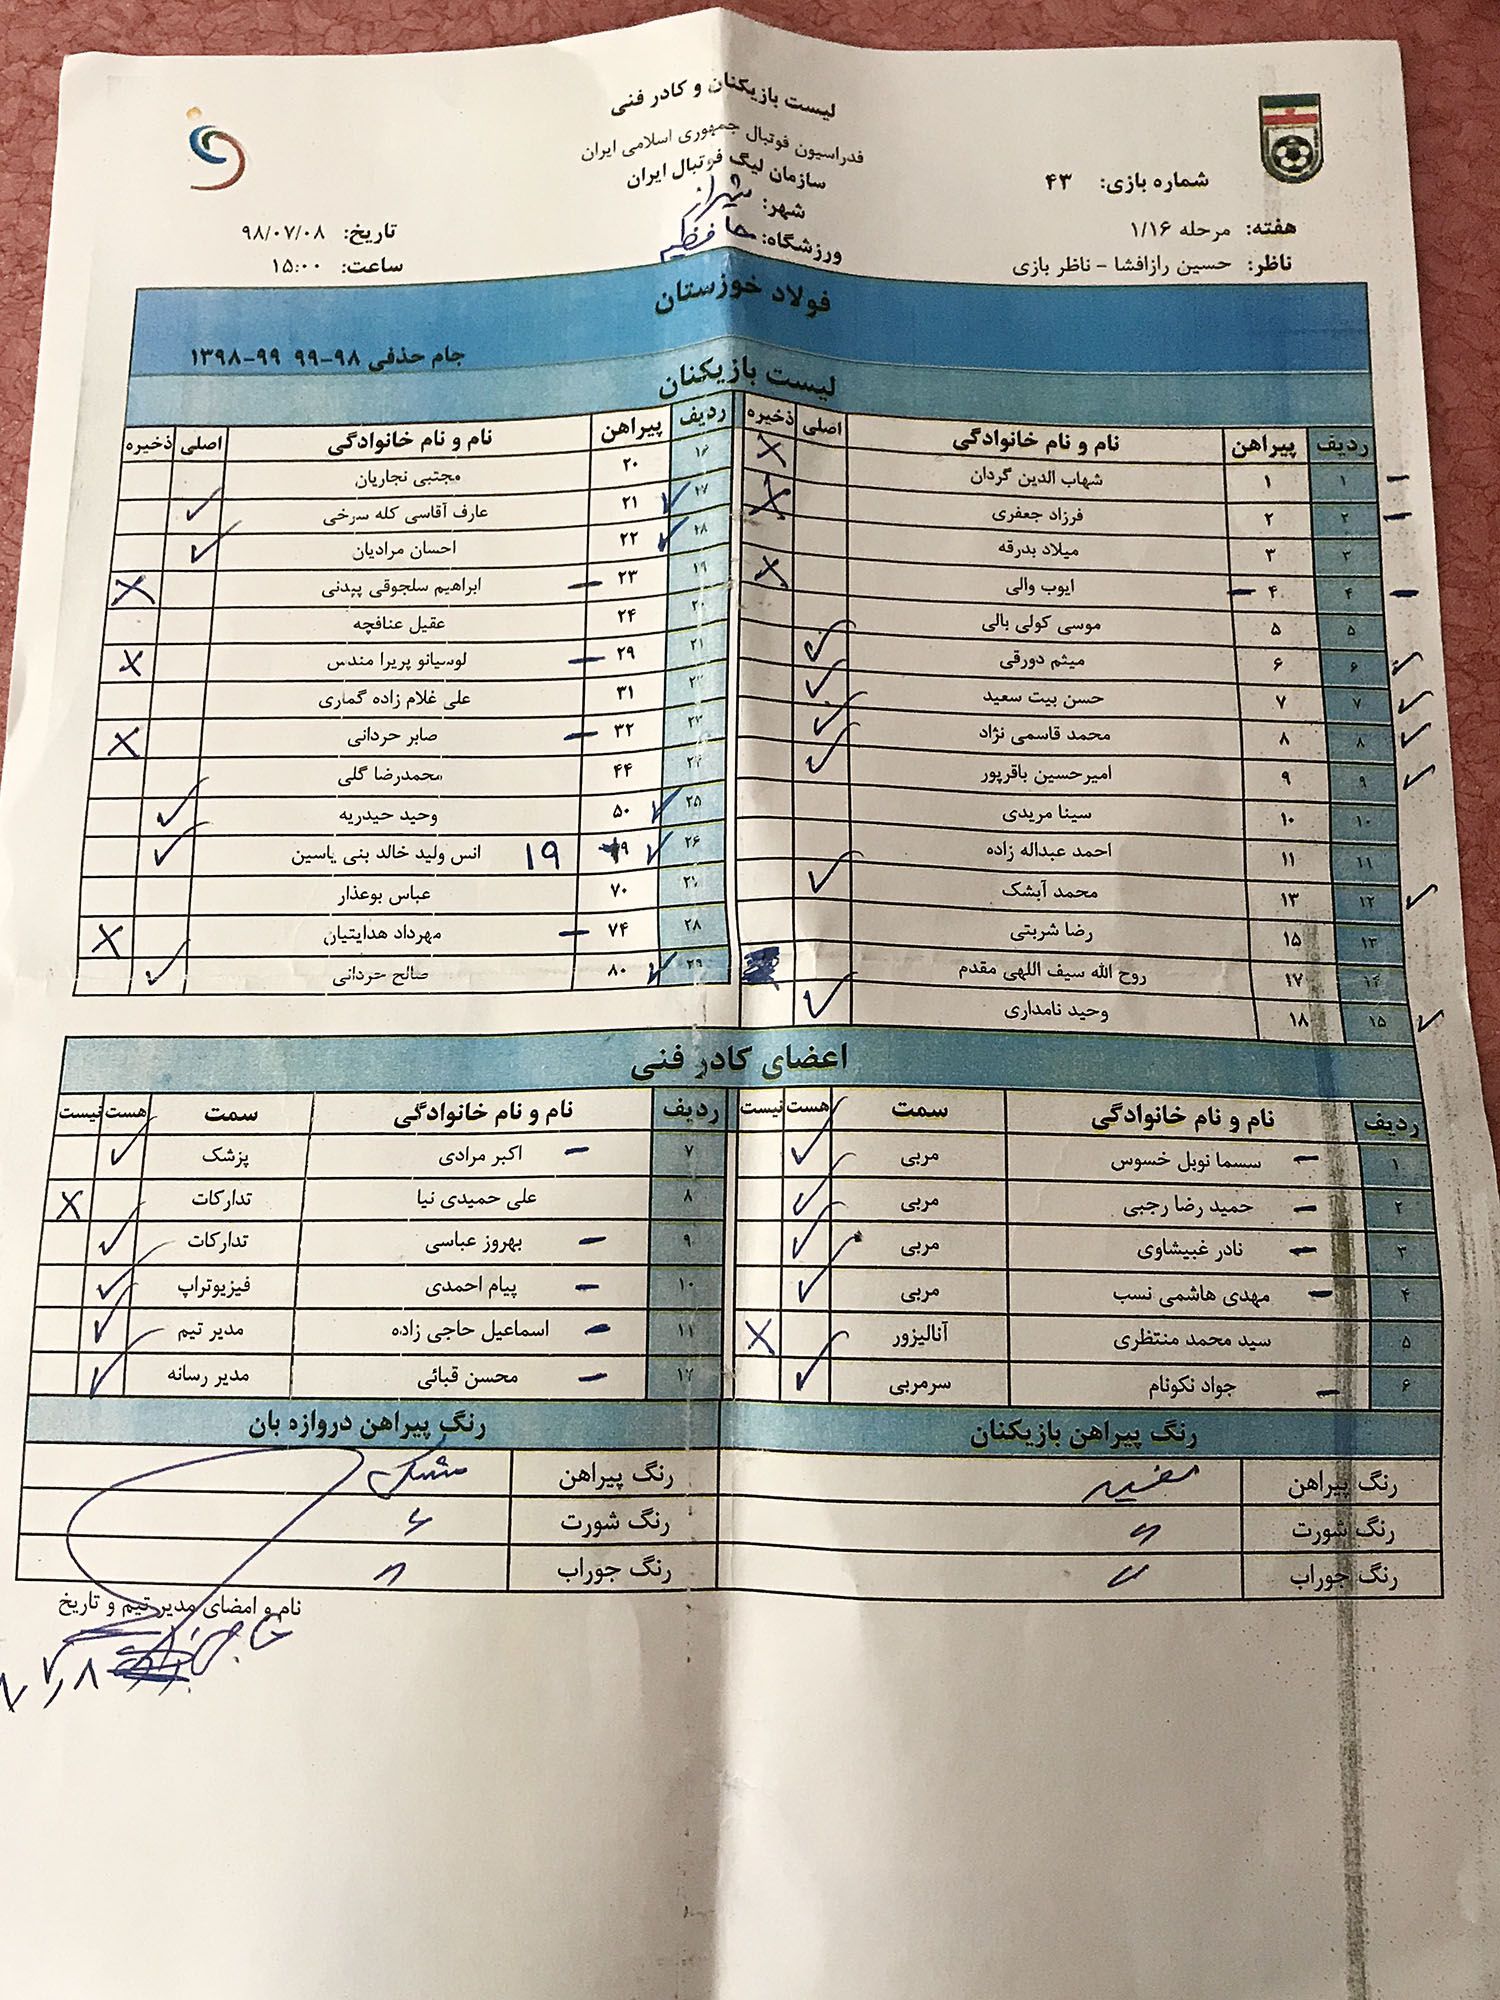 لیست بازیکنان و کادر فنی
فدراسیون فوتبال جمهوری اسلامی ایران
سازمان لیگ فوتبال ایران
شماره بازی: ۴۳
شهر: شیراز
هفته: مرحله ۱/۱۶
ورزشگاه: حافظیه
تاریخ: ۹۸/۰۷/۰۸
ناظر: حسین رازافشا - ناظر بازی
ساعت: ۱۵:۰۰
فولاد خوزستان
جام حذفی ۹۸-۹۹ ۹۹-۱۳۹۸
لیست بازیکنان
ردیف پیراهن نام و نام خانوادگی اصلی ذخیره
۱ ۱ شهاب الدین گردان X
۲ ۲ فرزاد جعفری X
۳ ۳ میلاد بدرقه
۴ ۴ ایوب والی X
۵ ۵ موسی کولی بالی
۶ ۶ میثم دورقی ✓
۷ ۷ حسن بیت سعید ✓
۸ ۸ محمد قاسمی نژاد ✓
۹ ۹ امیرحسین باقرپور ✓
۱۰ ۱۰ سینا مریدی
۱۱ ۱۱ احمد عبداله زاده
۱۲ ۱۳ محمد آبشک ✓
۱۳ ۱۵ رضا شربتی
۱۴ ۱۷ روح الله سیف اللهی مقدم
۱۵ ۱۸ وحید نامداری ✓
ردیف پیراهن نام و نام خانوادگی اصلی ذخیره
۱۶ ۲۰ مجتبی نجاریان
۱۷ ۲۱ عارف آقاسی کله سرخی ✓
۱۸ ۲۲ احسان مرادیان ✓
۱۹ ۲۳ ابراهیم سلجوقی پیدنی X
۲۰ ۲۴ عقیل عنافچه
۲۱ ۲۹ لوسیانو پریرا مندس X
۲۲ ۳۱ علی غلام زاده گماری
۲۳ ۳۲ صابر حردانی X
۲۴ ۴۴ محمدرضا گلی
۲۵ ۵۰ وحید حیدریه ✓
۲۶ 19 انس ولید خالد بنی یاسین ✓
۲۷ ۷۰ عباس بوعذار
۲۸ ۷۴ مهرداد هدایتیان X
۲۹ ۸۰ صالح حردانی ✓
اعضای کادر فنی
ردیف نام و نام خانوادگی سمت هست نیست
۱ سسما نوبل خسوس مربی ✓
۲ حمید رضا رجبی مربی ✓
۳ نادر غبیشاوی مربی ✓
۴ مهدی هاشمی نسب مربی ✓
۵ سید محمد منتظری آنالیزور X
۶ جواد نکونام سرمربی ✓
ردیف نام و نام خانوادگی سمت هست نیست
۷ اکبر مرادی پزشک ✓
۸ علی حمیدی نیا تدارکات X
۹ بهروز عباسی تدارکات ✓
۱۰ پیام احمدی فیزیوتراپ ✓
۱۱ اسماعیل حاجی زاده مدیر تیم ✓
۱۲ محسن قبائی مدیر رسانه ✓
رنگ پیراهن بازیکنان
رنگ پیراهن سفید
رنگ شورت
رنگ جوراب
رنگ پیراهن دروازه بان
رنگ پیراهن مشکی
رنگ شورت
رنگ جوراب
نام و امضای مدیر تیم و تاریخ